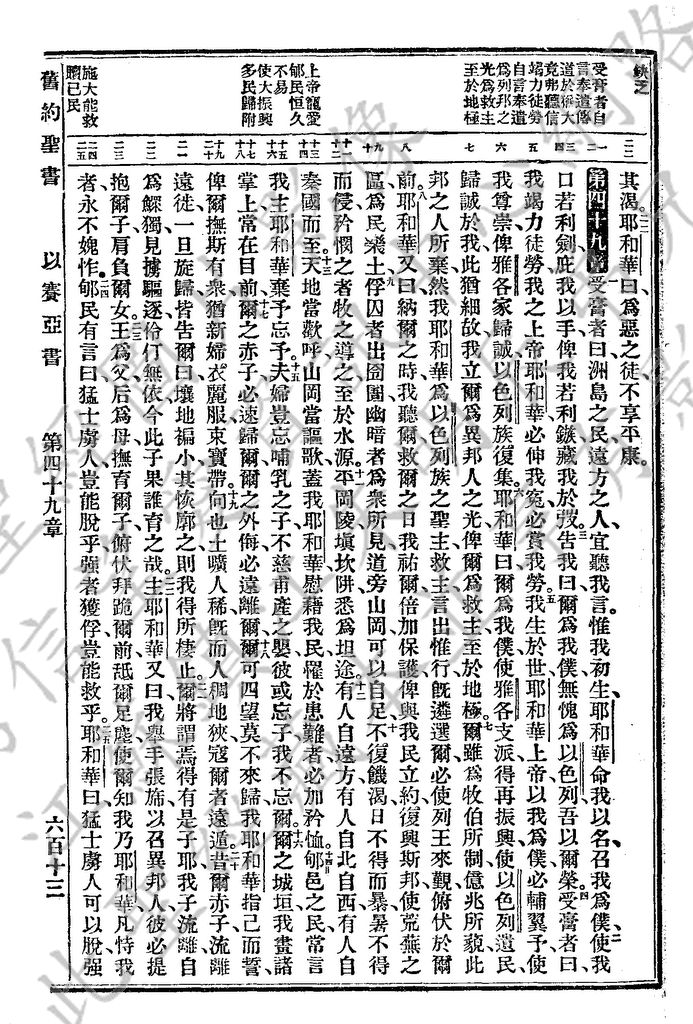 其渴、耶和華曰、爲惡之徒、不享平康。
第四十九章 受膏者曰、洲島之民、遠方之人、宜聽我言、惟我初生、耶和華命我、以名召我爲僕、使我
口若利劍、庇我以手、俾我若利鏃、藏我於弢、告我曰、爾爲我僕、無愧爲以色列、吾以爾榮、受膏者曰、
我竭力徒勞、我之上帝耶和華、必伸我冤、必賞我勞、我生於世、耶和華上帝以我爲僕、必輔翼予、使
我尊崇、俾雅各家歸誠、以色列族復集、耶和華曰、爾爲我僕、使雅各支派、得再振興、使以色列遺民、
歸誠於我、此猶細故、我立爾爲異邦人之光、俾爾爲救主、至於地極、爾雖爲牧伯所制、億兆所藐、此
邦之人所棄、然我耶和華爲以色列族之聖主救主、言出惟行、旣遴選爾、必使列王來覲、俯伏於爾
前、耶和華又曰、納爾之時、我聽爾、救爾之日、我祐爾、倍加保護、俾與我民立約、復興斯邦、使荒蕪之
區、爲民樂土、俘囚者出囹圄、幽暗者爲衆所見、道旁山岡、可以自足、不復饑渴、日不得而暴、暑不得
而侵、矜憫之者、牧之導之、至於水源、平岡陵、塡坎阱、悉爲坦途、有人自遠方、有人自北自西、有人自
秦國而至、天地當歡呼、山岡當謳歌、蓋我耶和華慰藉我民、罹於患難者、必加矜恤、郇邑之民常言
我主耶和華棄予忘予、夫婦豈忘哺乳之子、不慈甫產之嬰、彼或忘子、我不忘爾、爾之城垣、我畫諸
掌上、常在目前、爾之赤子、必速歸爾、爾之外侮、必遠離爾、爾可四望、莫不來歸、我耶和華指己而誓、
俾爾撫斯有衆、猶新婦衣麗服、束寶帶、向也土曠人稀、旣而人稠地狹、寇爾者遠遁、昔爾赤子流離
遠徙、一旦旋歸、皆告爾曰、壤地褊小、其恢廓之、則我得所棲止、爾將謂焉得有是子耶、我子流離、自
爲鰥獨、見擄驅逐、伶仃無依、今此子果誰育之哉、主耶和華又曰、我舉手張旆、以召異邦人、彼必提
抱爾子、肩負爾女、王爲父、后爲母、撫育爾子、俯伏拜跪爾前、舐爾足塵、使爾知我乃耶和華、凡恃我
者、永不媿怍、郇民有言曰、猛士虜人、豈能脫乎、強者獲俘、豈能救乎、耶和華曰、猛士虜人可以脫、強
缺之
受膏者自
言奉遣傳
道於稱大
竟弗聽信
竭力徒勞
自言奉遣
爲列邦之
光爲救主
至於地極
上帝寵愛
郇民恒久
不易
使大振興
多民歸附
施大能救
贖己民
舊約聖書
以賽亞書
第四十九章
六百十三